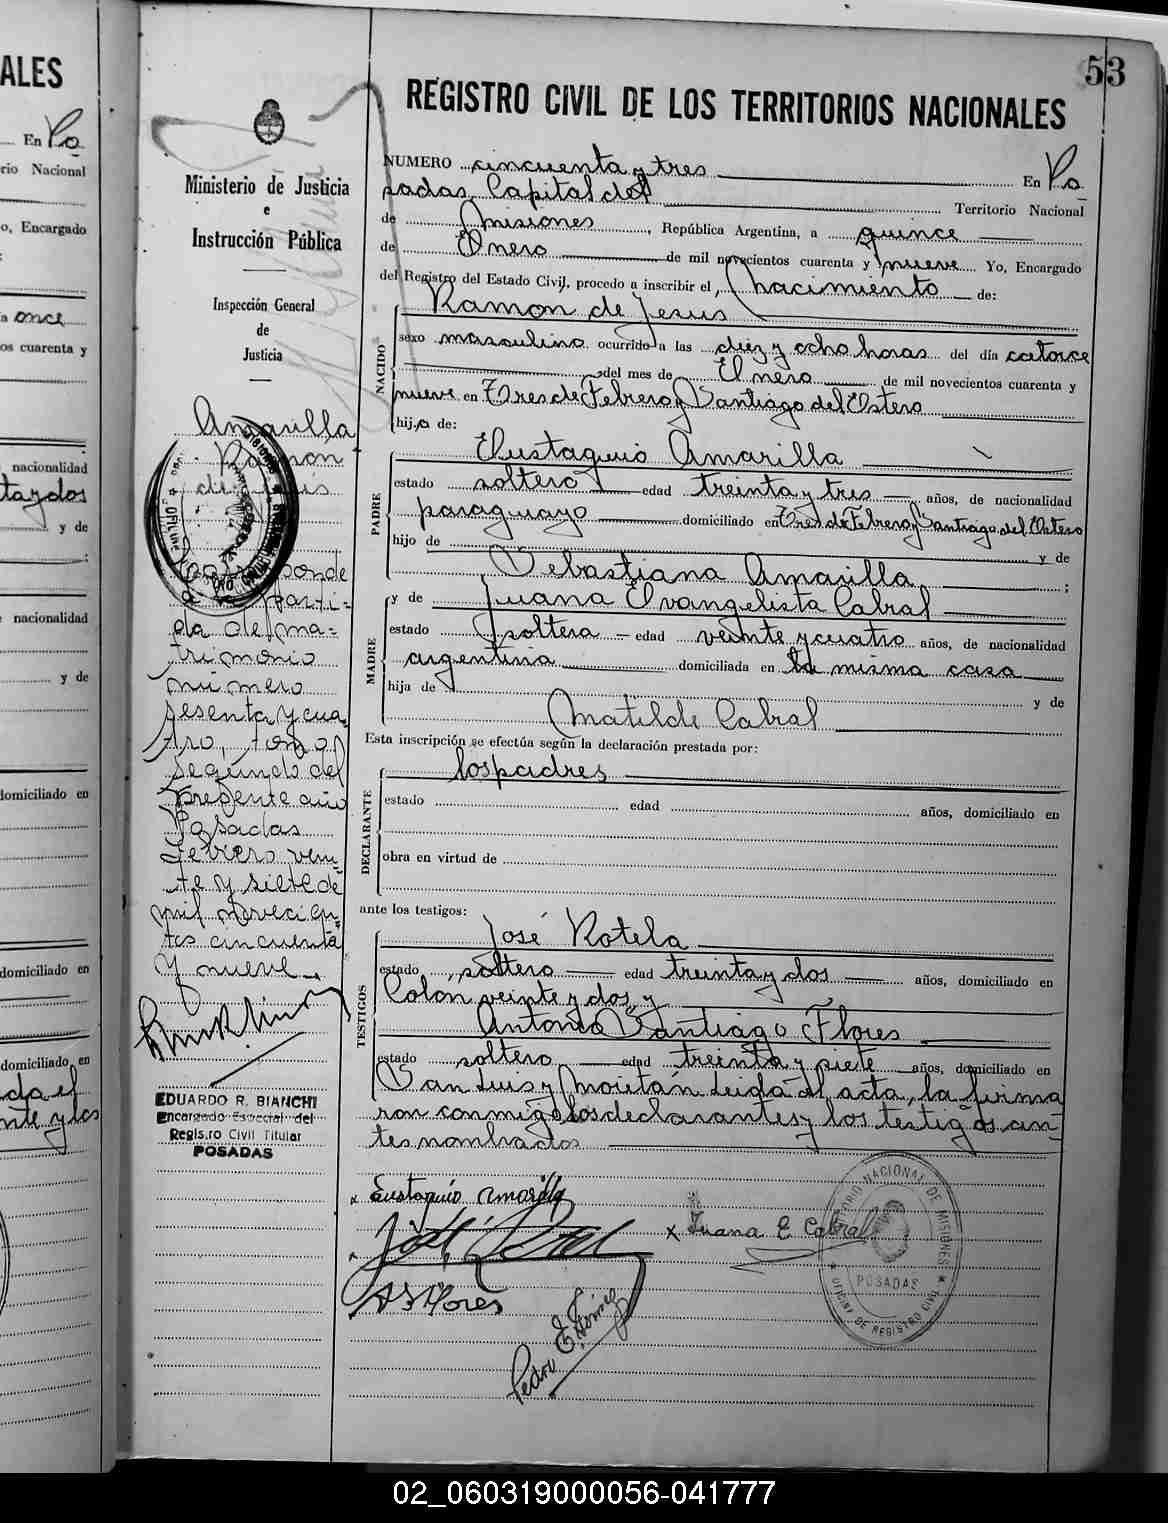 53
REGISTRO CIVIL DE LOS TERRITORIOS NACIONALES
NUMERO cincuenta y tres En Po
sadas, Capital del Territorio Nacional
de Misiones, República Argentina, a quince
de Enero de mil novecientos cuarenta y nueve Yo, Encargado
del Registro del Estado Civil, procedo a inscribir el, nacimiento de:
NACIDO
Ramon de Jesus
sexo masculino ocurrido a las diez y ocho horas del día catorce
del mes de Enero de mil novecientos cuarenta y
nueve en Tres de Febrero y Santiago del Estero
hijo de:
PADRE
Eustaquio Amarilla
estado soltero edad treinta y tres años, de nacionalidad
paraguayo domiciliado en Tres de Febrero y Santiago del Estero
hijo de y de
Sebastiana Amarilla ;
MADRE
y de Juana Evangelista Cabral
estado soltera edad veinte y cuatro años, de nacionalidad
argentina domiciliada en la misma casa
hija de y de
Matilde Cabral
Esta inscripción se efectúa según la declaración prestada por:
DECLARANTE
los padres
estado edad años, domiciliado en
obra en virtud de
ante los testigos:
TESTIGOS
José Rotela
estado soltero edad treinta y dos años, domiciliado en
Colon veinte y dos, y
Antonio Santiago Flores
estado soltero edad treinta y siete años, domiciliado en
San Luis y Leida el acta, la firma
ron conmigo los declarantes y los testigos an-
tes nombrados
Eustaquio Amarilla
x Juana E Cabral
A S Flores
Pedro E.
TERRITORIO NACIONAL DE MISIONES
POSADAS
OFICINA DE REGISTRO CIVIL
Ministerio de Justicia
e
Instrucción Pública
Inspección General
de
Justicia
Amarilla
Ramón
de Jesús
Corresponde
a parti-
da de ma-
trimonio
número
sesenta y cua-
tro, tomo
segundo del
presente año
Posadas
febrero vein-
te y siete de
mil novecien-
tos cincuenta
y nueve
EDUARDO R. BIANCHI
Encargado Especial del
Registro Civil Titular
POSADAS
ALES
En Po
rio Nacional
o, Encargado
a once
os cuarenta y
nacionalidad
ta y dos
y de
;
nacionalidad
y de
domiciliado en
domiciliado en
domiciliado en
da el
nte y los
02_060319000056-041777